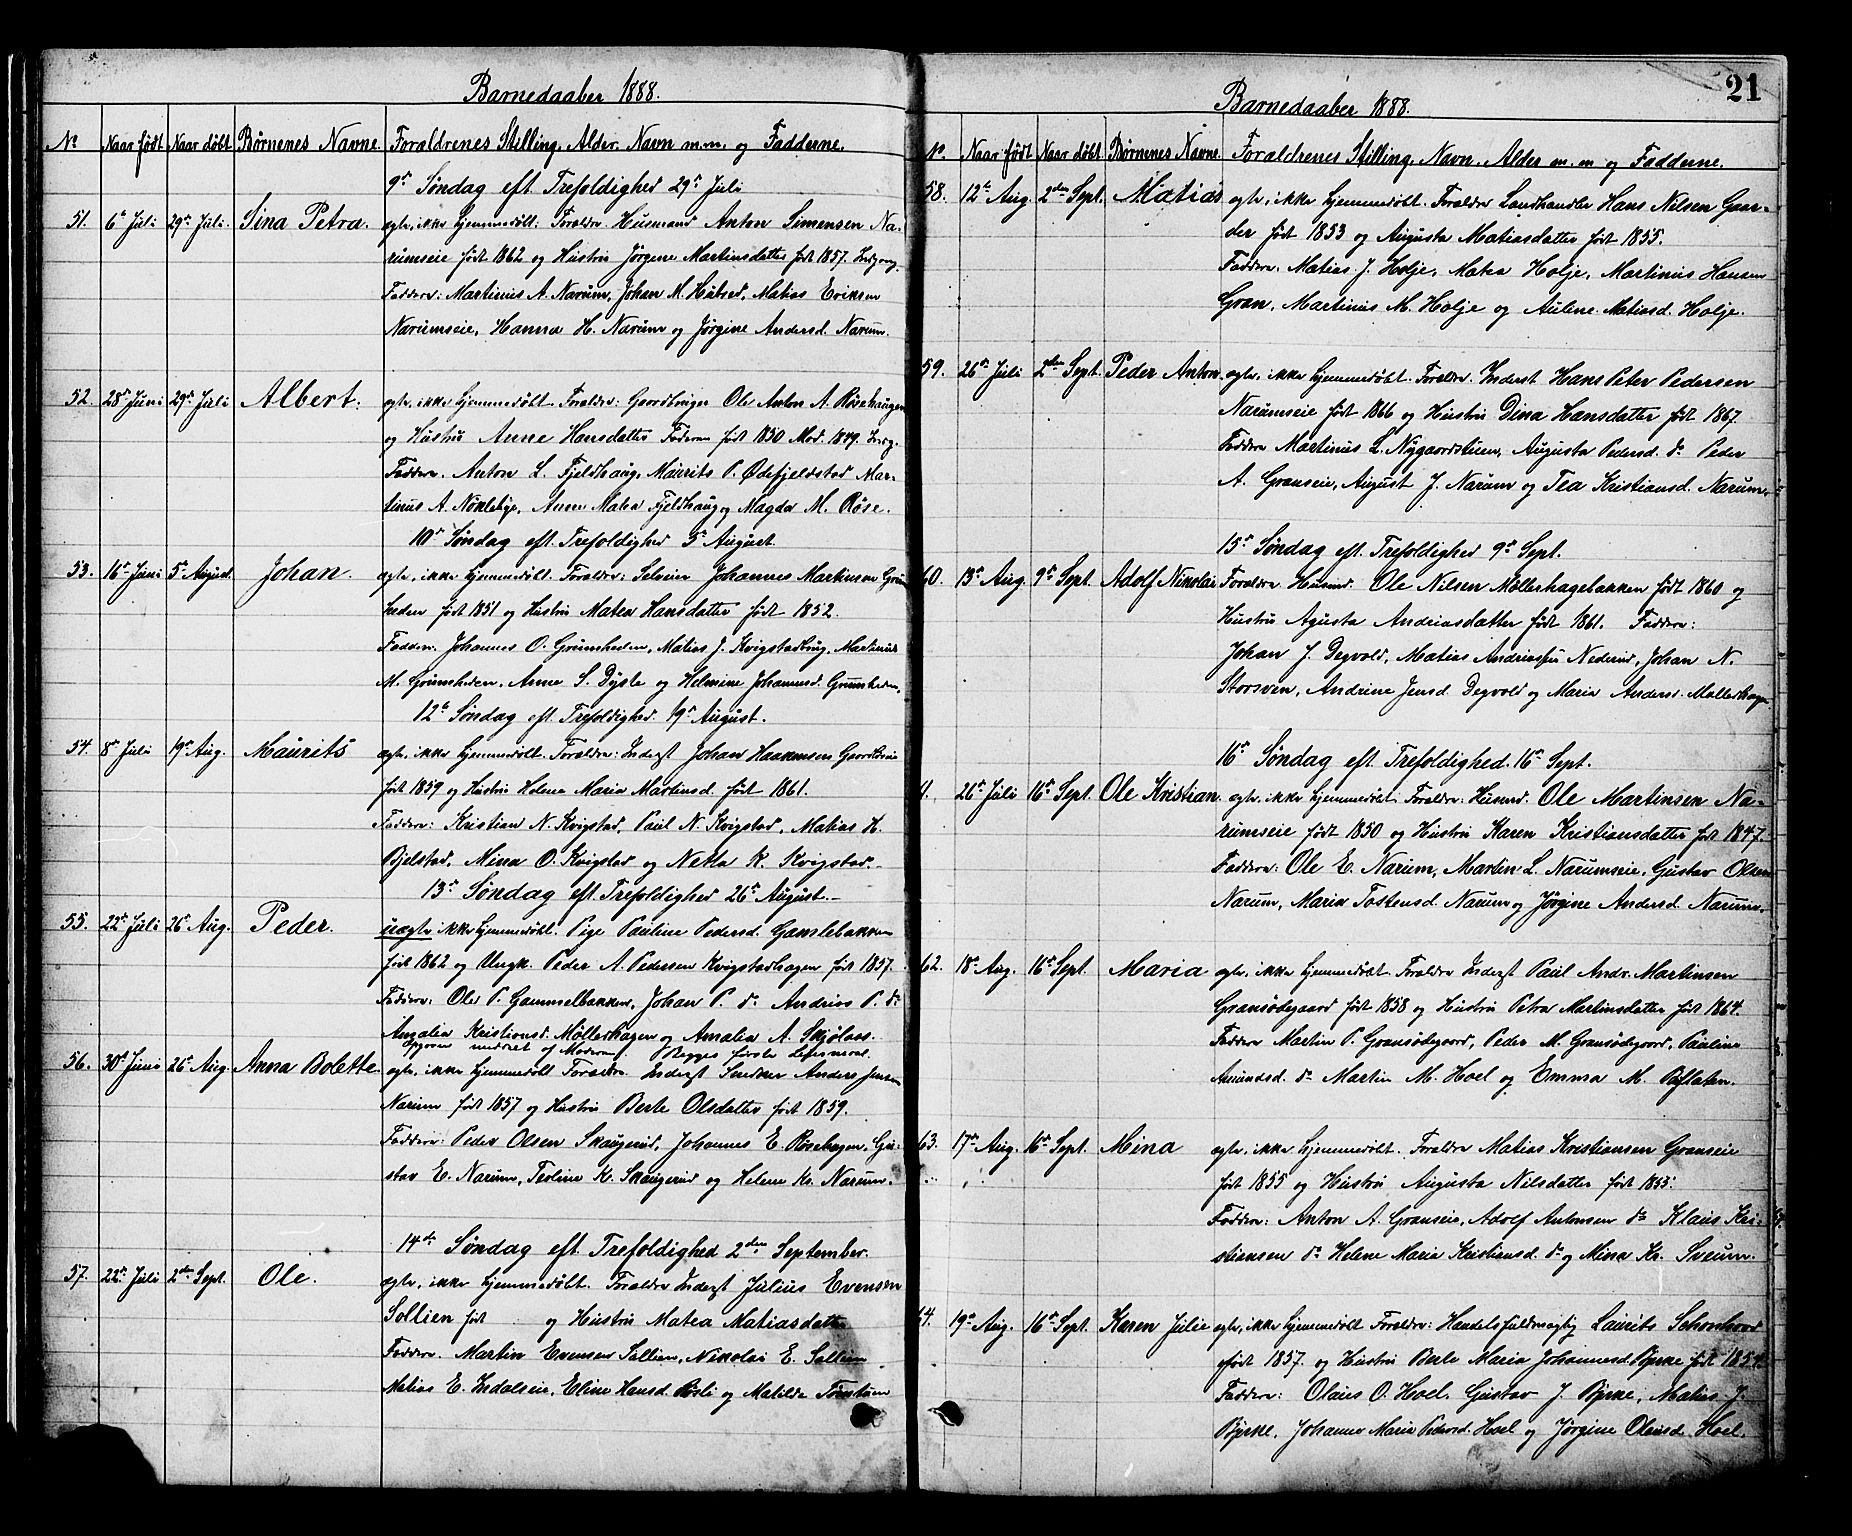 Barnedaaber 1888.
No Naar født Naar døbt Børnenes Navne Forældrenes Stilling, Alder, Navn m.m. og Fadderne.
9de Søndag eft. Trefoldighed 29de Juli
51. 6te Juli 29de Juli. Sina Petra. ægte, ikke hjemmedøbt. Forældre: Husmand Anton Simensen Na-
rumseie født 1862 og Hustru Jørgene Martinsdatter født 1857.
Faddere: Martinus A. Narum, Johan M. Hubred, Matias Eriksen
Narumseie, Hanna H. Narum og Jørgine Andersd. Narum.
52. 28de Juni 29de Juli Albert. ægte, ikke hjemmedøbt. Forældre: Gaardbruger Ole Anton A. Røsehaugen
og Hustru Anne Hansdatter Faderen født 1850 Mod. 1849.
Faddere. Anton L. Fjeldhaug, Maurits P. Ødefjeldstad Mar-
tinus A. Nøklebye, Anne Matea Fjeldhaug og Magda M. Røse.
10de Søndag eft. Trefoldighed 5te August.
53. 16de Juni 5te August. Johan. ægte, ikke hjemmedøbt. Forældre: Selveier Johannes Martinsen Grim
heden født 1851 og Hustru Matea Hansdatter født 1852.
Faddere. Johannes O. Grimsheden, Matias J. Kvigstadbrug, Martinus
M. Grimsheden, Anne S. Dyste og Helmine Johannesd. Grimsheden.
12te Søndag eft. Trefoldighed. 19de August.
54. 8de Juli 19de Aug. Maurits ægte ikke hjemmedøbt. Forældre: Inderst Johan Haakensen
født 1859 og Hustru Helene Maria Martinsd. født 1861.
Faddere: Kristian N. Kvigstad, Paul N. Kvigstad, Matias H.
Bjelstad, Mina O. Kvigstad og Netta K. Kvigstad.
13de Søndag eft. Trefoldighed 26de August.
55. 22de Juli 26de Aug. Peder. uægte ikke hjemmedøbt. Pige Pauline Pedersd. Gamlebakken
født 1862 og Ungk. Peder A. Pedersen Kvigstadhagen født 1857.
Faddere: Ole P. Gammelbakken, Johan P. do Andrias P. do
Amalia Kristiansd. Møllerhagen og Amalia A. Skjølaas.
Opgiven meddelt af Moderen. Begges første Leiermaal.
56. 30te Juni 26de Aug. Anna Bolette ægte, ikke hjemmedøbt Forældre Inderst Snedker Anders Jensen
Narum født 1857 og Hustru Berte Olsdatter født 1859.
Faddere: Peder Olsen Skaugerud, Johannes E. Røsehagen, Gu-
stav E. Narum, Teoline K. Skaugerud og Helene Kr. Narum.
14de Søndag eft. Trefoldighed 2den September.
57. 22de Juli 2den Sept. Ole. ægte, ikke hjemmedøbt. Forældre Inderst Julius Evensen
Sollien født og Hustru Matea Matiasdatter
Faddere. Martin Evensen Sollien, Nikolai E. Sollien
Matias E. Indalseie, Eline Hansd. Røsli og Matilde
21
Barnedaaber 1888.
No. Naar født Naar døbt Børnenes Navne Forældrenes Stilling, Navn, Alder m.m og Fadderne.
58. 12te Aug. 2den Sept. Matias ægte, ikke hjemmedøbt. Forældre Landhandler Hans Nilsen Gaar-
der født 1853 og Augusta Matiasdatter født 1855.
Faddere. Matias J. Holje, Matea Holje, Martinus Hansen
Gran, Martinus M. Holje og Auline Matiasd. Holje.
59. 26de Juli 2den Sept. Peder Anton ægte, ikke hjemmedøbt. Forældre. Inderst Hans Peter Pedersen
Narumseie født 1866 og Hustru Dina Hansdatter født 1867.
Faddere Martinus L. Nygaardstuen, Augusta Pedersd. do Peder
A. Granseie, August J. Narum og Tea Kristiansd. Narum.
15de Søndag eft. Trefoldighed 9de Sept.
60. 13de Aug. 9de Sept. Adolf Nikolai Forældre Husmd. Ole Nilsen Møllerhagebakken født 1860 og
Hustru Agusta Andriasdatter født 1861. Faddere:
Johan J. Degvold, Matias Andriassen Nederud, Johan N.
Storsven, Andrine Jensd. Degvold og Maria Andersd. Møllerhagen
16de Søndag eft. Trefoldighed. 16de Sept.
1. 26de Juli 16de Sept. Ole Kristian. ægte, ikke hjemmedøbt Forældre: Husmd. Ole Martinsen Na-
rumseie født 1850 og Hustru Karen Kristiansdatter født 1847.
Faddere: Ole E. Narum, Martin L. Narumseie, Gustav Olsen
Narum, Maria Tostensd. Narum og Jørgine Andersd. Narum.
62. 18de Aug. 16de Sept. Maria ægte, ikke hjemmedøbt Forældre Inderst Paul Andr. Martinsen
Gransødegaard født 1858 og Hustru Petra Martinsdatter født 1864.
Faddere Martin P. Gransødegaard, Peder M. Gransødegaard, Pauline
Amundsd. do Martin M. Hoel og Emma M. Røflaten.
63. 17de Aug. 16de Sept. Mina ægte, ikke hjemmedøbt. Forældre Matias Kristiansen Granseie
født 1855 og Hustru Augusta Nilsdatter født 1853.
Faddere: Anton A. Granseie, Adolf Antonsen do Klaus Kri-
stiansen do Helene Maria Kristiansd. do og Mina Kr. Sveum.
64. 19de Aug. 16de Sept. Karen Julie ægte, ikke hjemmedøbt Forældre: Handelsfuldmægtig Laurits Schonhord
født 1857. og Hustru Berte Maria Johannesd. Bjerke født
Faddere: Olaus O. Hoel. Gustav J. Bjerke, Matias J.
Bjerke, Johanne Marie Pedersd. Hoel og Jørgine Olausd. Hoel.